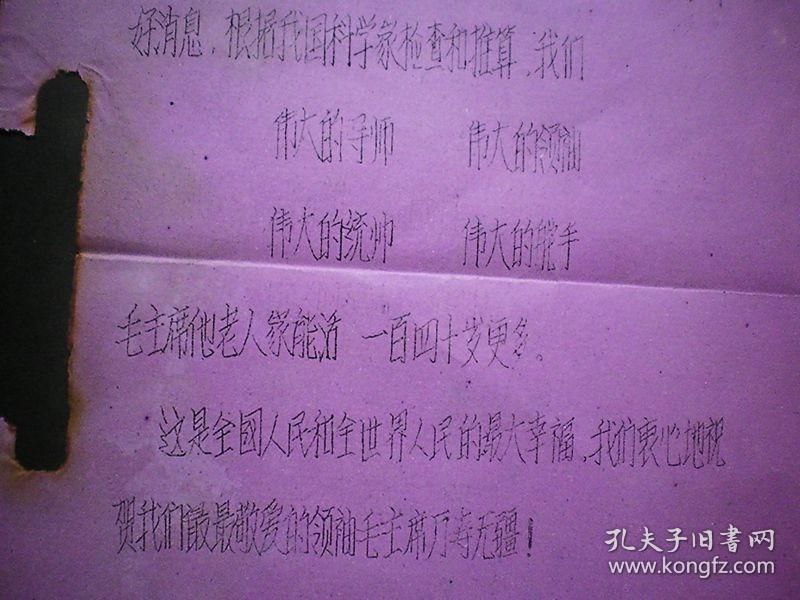 好消息，根据我国科学家检查和推算，我们
伟大的导师 伟大的领袖
伟大的统帅 伟大的舵手
毛主席他老人家能活 一百四十岁更多。
这是全國人民和全世界人民的最大幸福，我们衷心地祝
贺我们最最敬爱的领袖毛主席万寿无疆！
孔夫子旧书网
www.kongfz.com